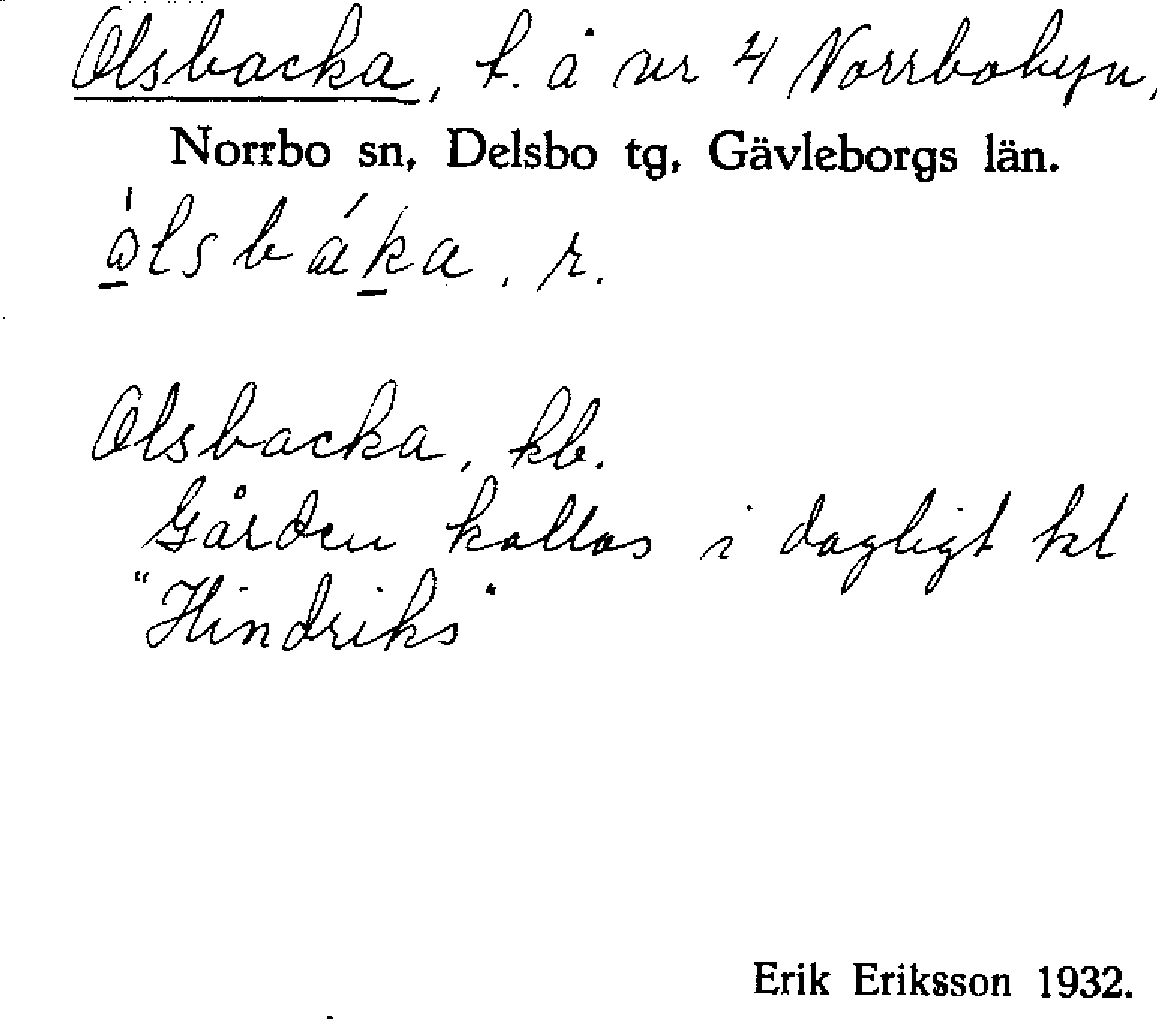 Olsbacka, t. å nr 4 Norrbobyn,
Norrbo sn, Delsbo tg, Gävleborgs län.
ὰlsbáka, r.
Olsbacka, kb.
Gården kallas i dagligt tal
"Hindriks"
Erik Eriksson 1932.